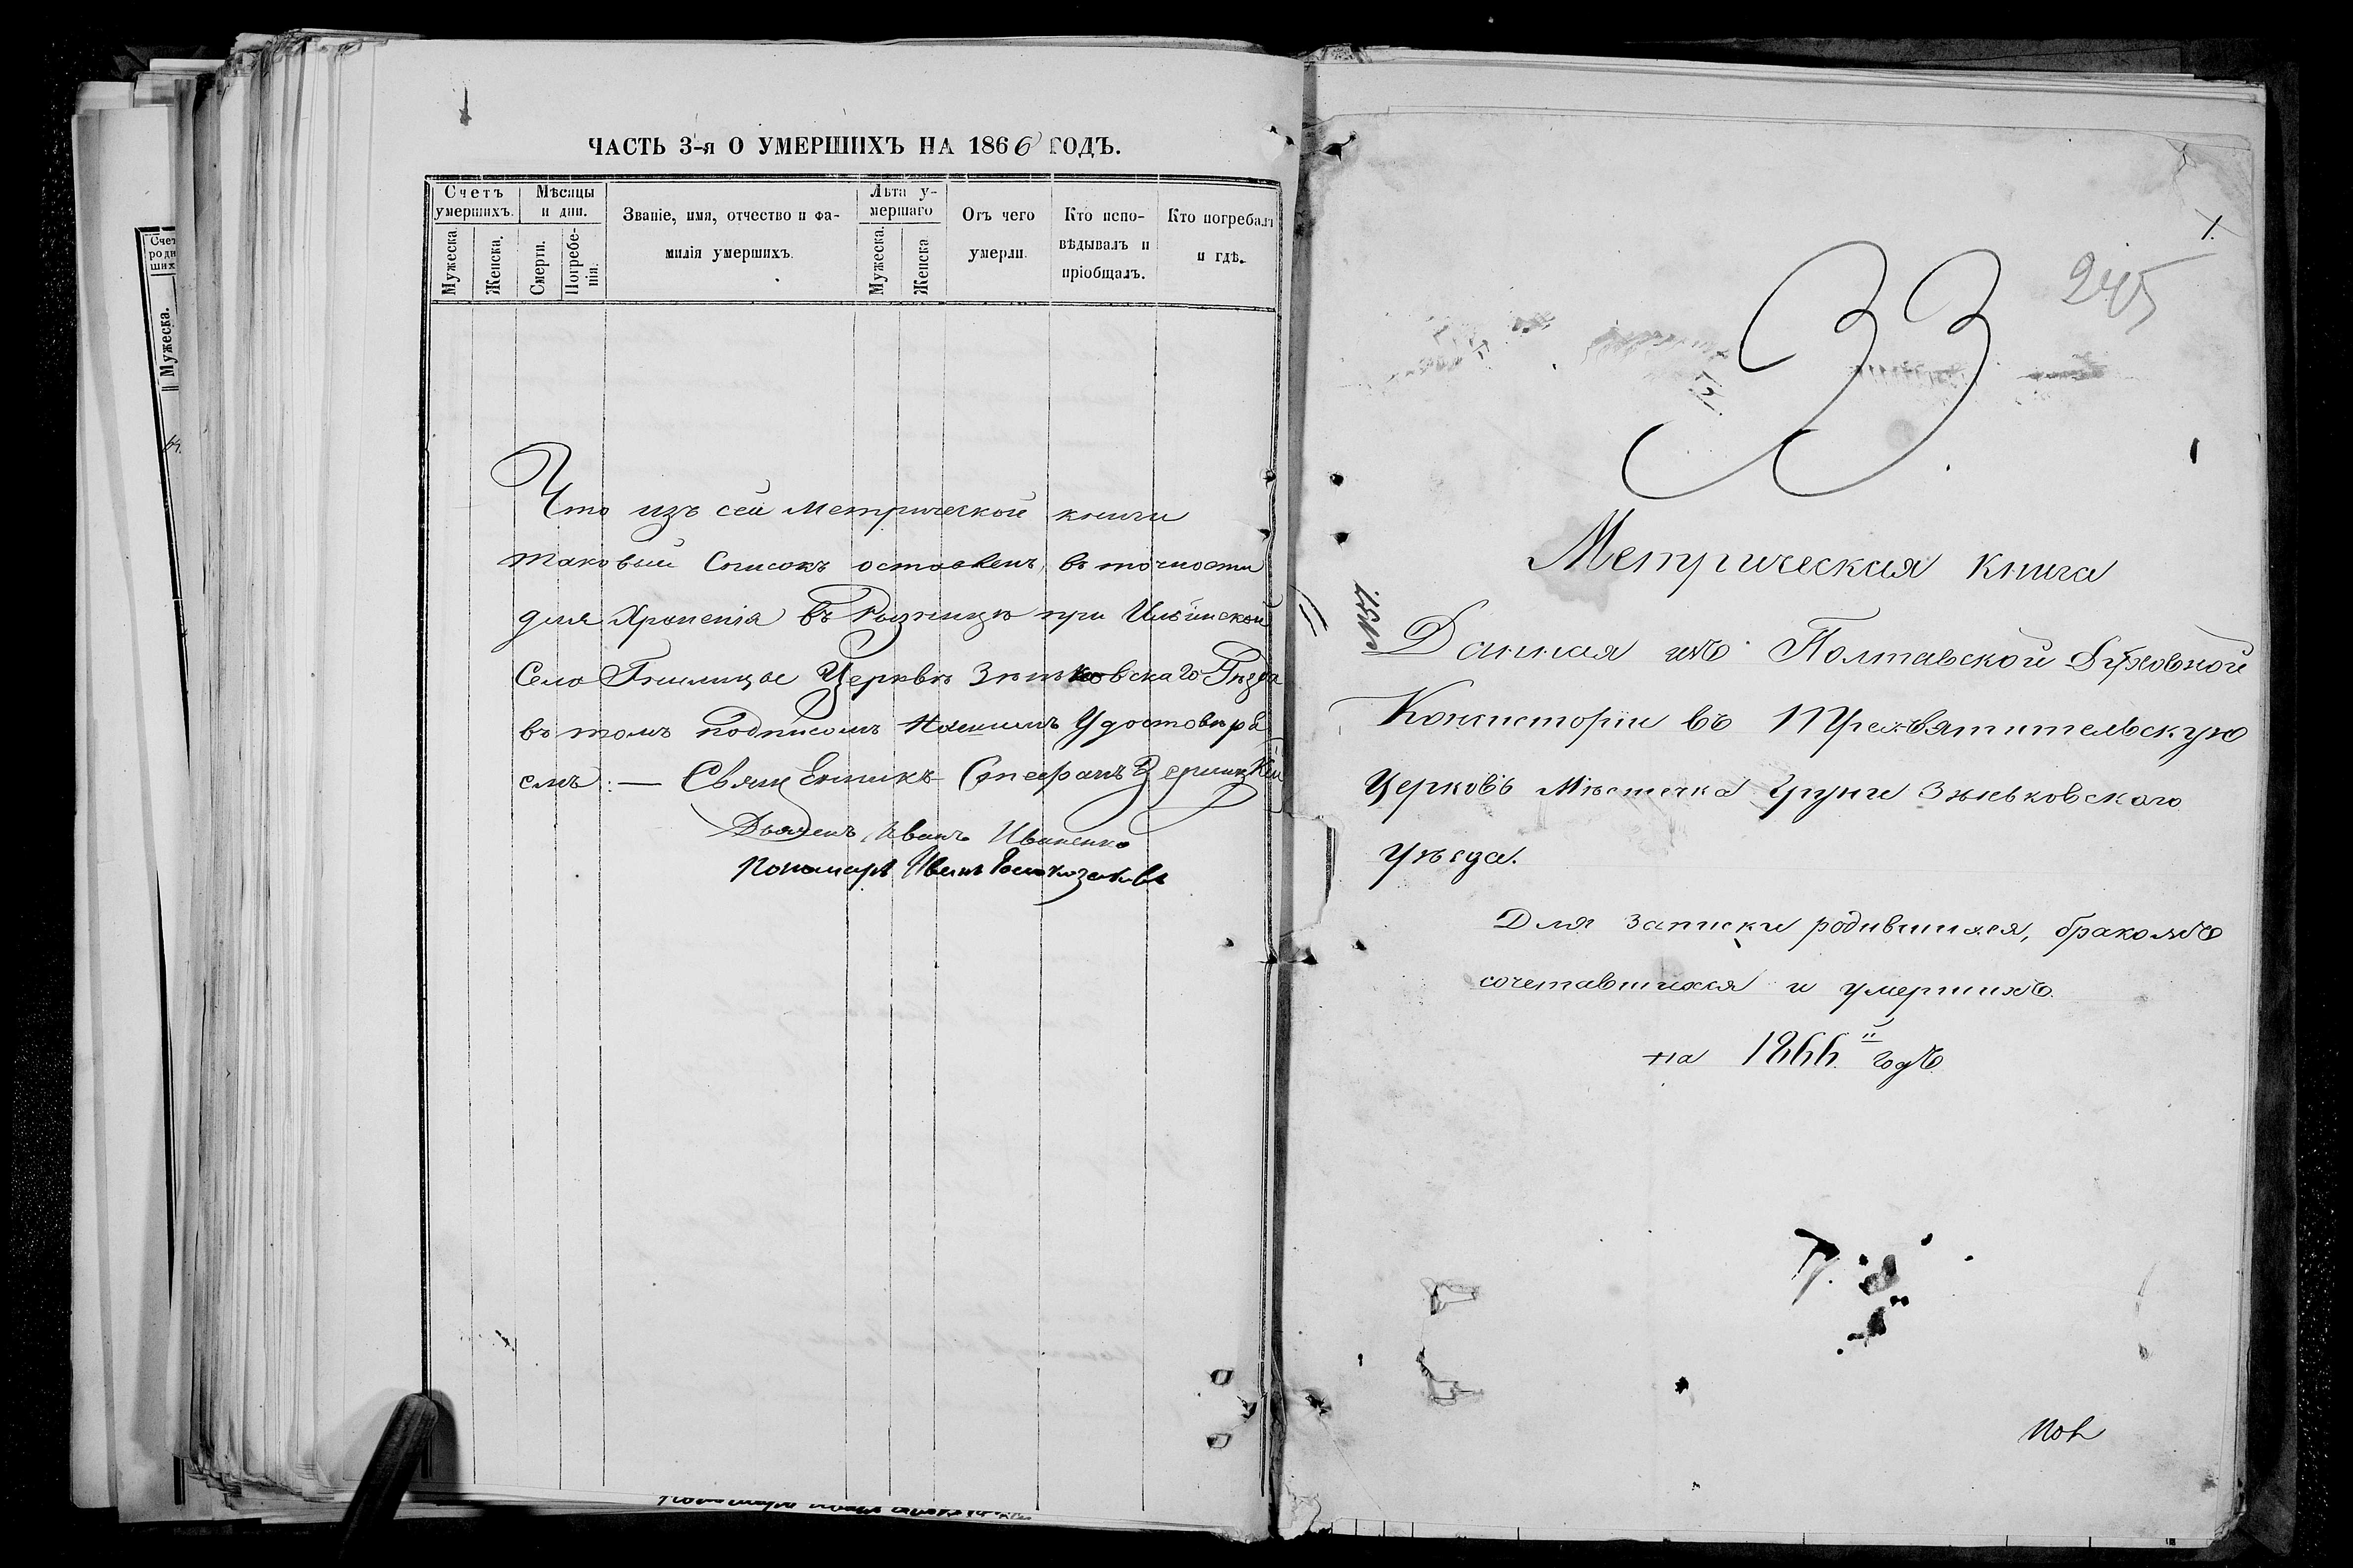 ЧАСТЬ 3-я О УМЕРШИХЪ НА 1866 ГОДЪ.
Счетъ умершихъ.
Мужеска.
Женска.
Мѣсяцы и дни.
Смерти.
Погребенія.
Званіе, имя, отчество и фамилія умершихъ.
Лѣта умершаго
Мужеска.
Женска
Отъ чего умерли.
Кто исповѣдывалъ и пріобщалъ.
Кто погребалъ и гдѣ.
Что изъ сей Метрической книги
таковый Списокъ оставленъ, въ точности
для Храненія въ Ризницѣ при Ильинской
Село Церквѣ Зѣньковскаго
въ томъ подписомъ Нашимъ Удостовѣря
емъ: — Священникъ Стефанъ
Дьяченъ Иванъ Иваненко
Пономарь Иванъ
1.
33
245
Метрическая книга
Данная изъ Полтавской Духовной
Консисторіи въ Трехъвятительскую
Церковь Мѣстечка Груни Зѣньковского
Уѣзда.
Для записки родившихся, бракомъ
сочетавшихся и умершихъ.
на 1866й годъ